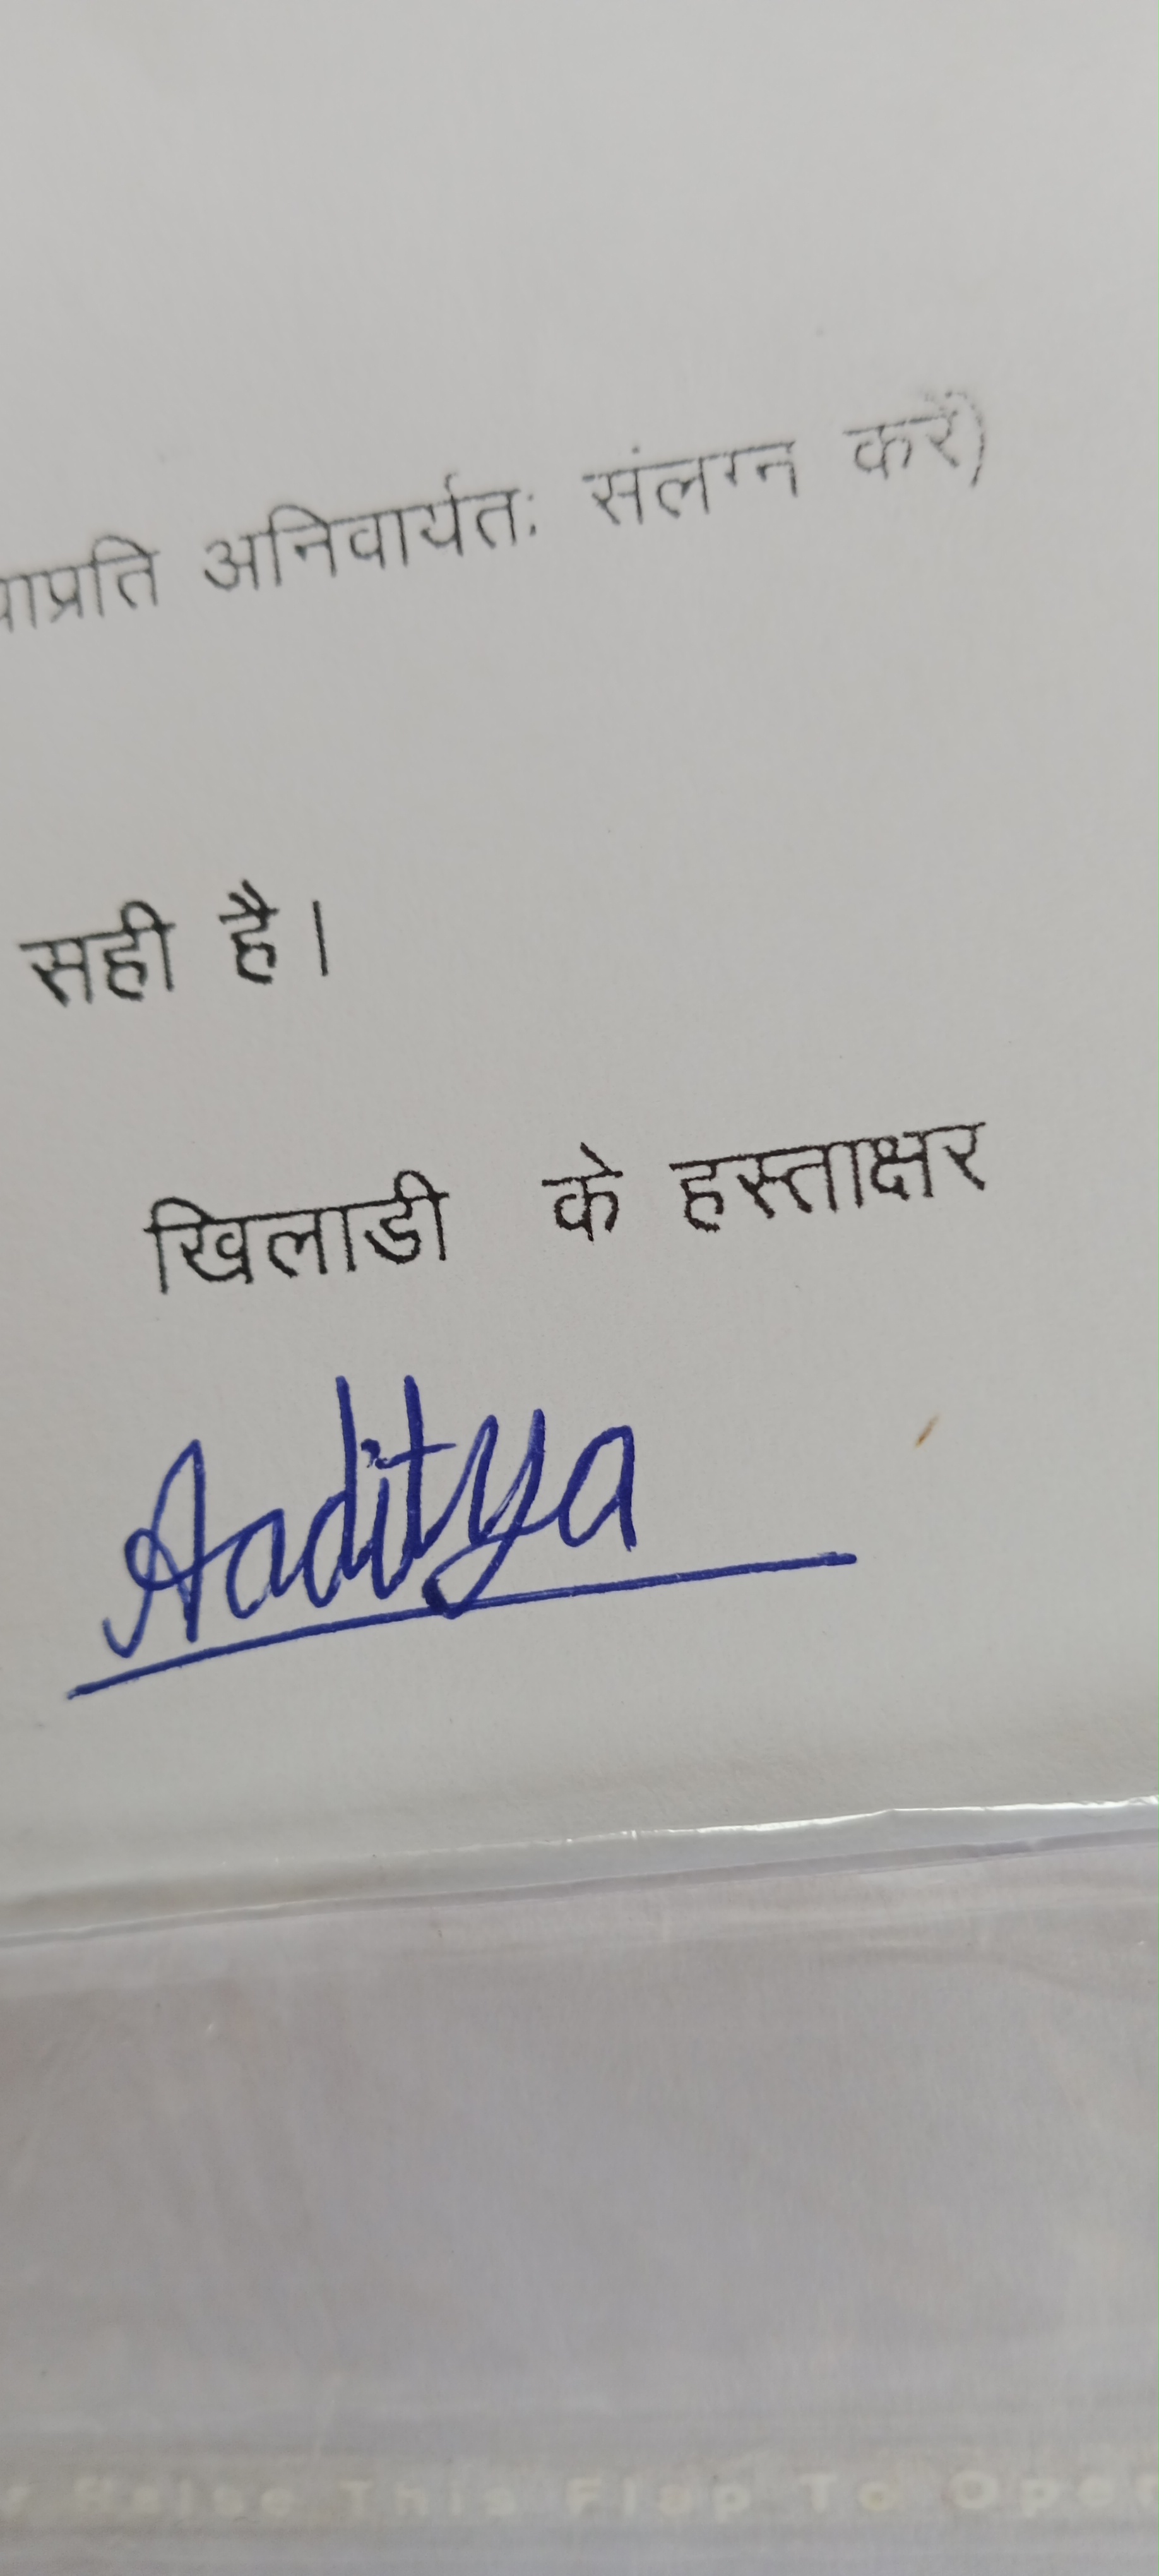 अनिवार्यतः संलग्न करें)
सही है।
खिलाडी के हस्ताक्षर
Aaditya
Raise This Flap To Open